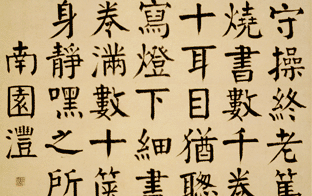 守操終老篤
燒書數千卷
十耳目猶聰
寫燈下細書
卷滿數十篋
身靜嘿之所
南園灃